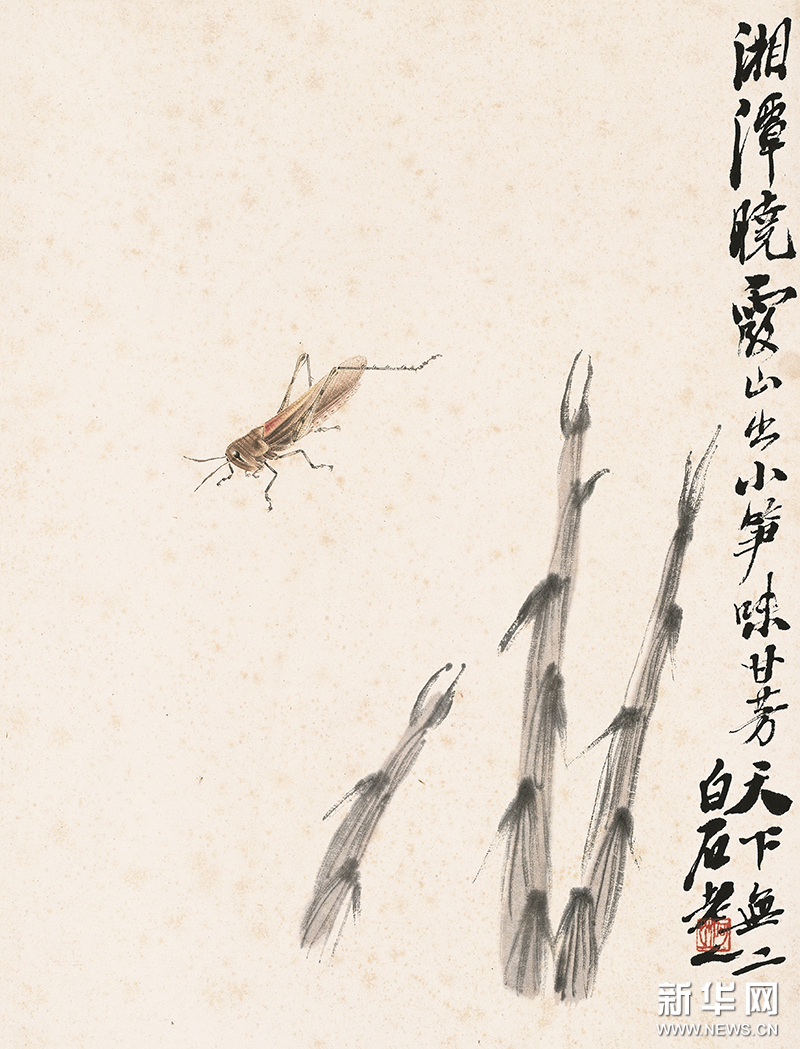 湘潭曉霞山出小笋味甘芳天下無二
白石老人
新华网
WWW.NEWS.CN